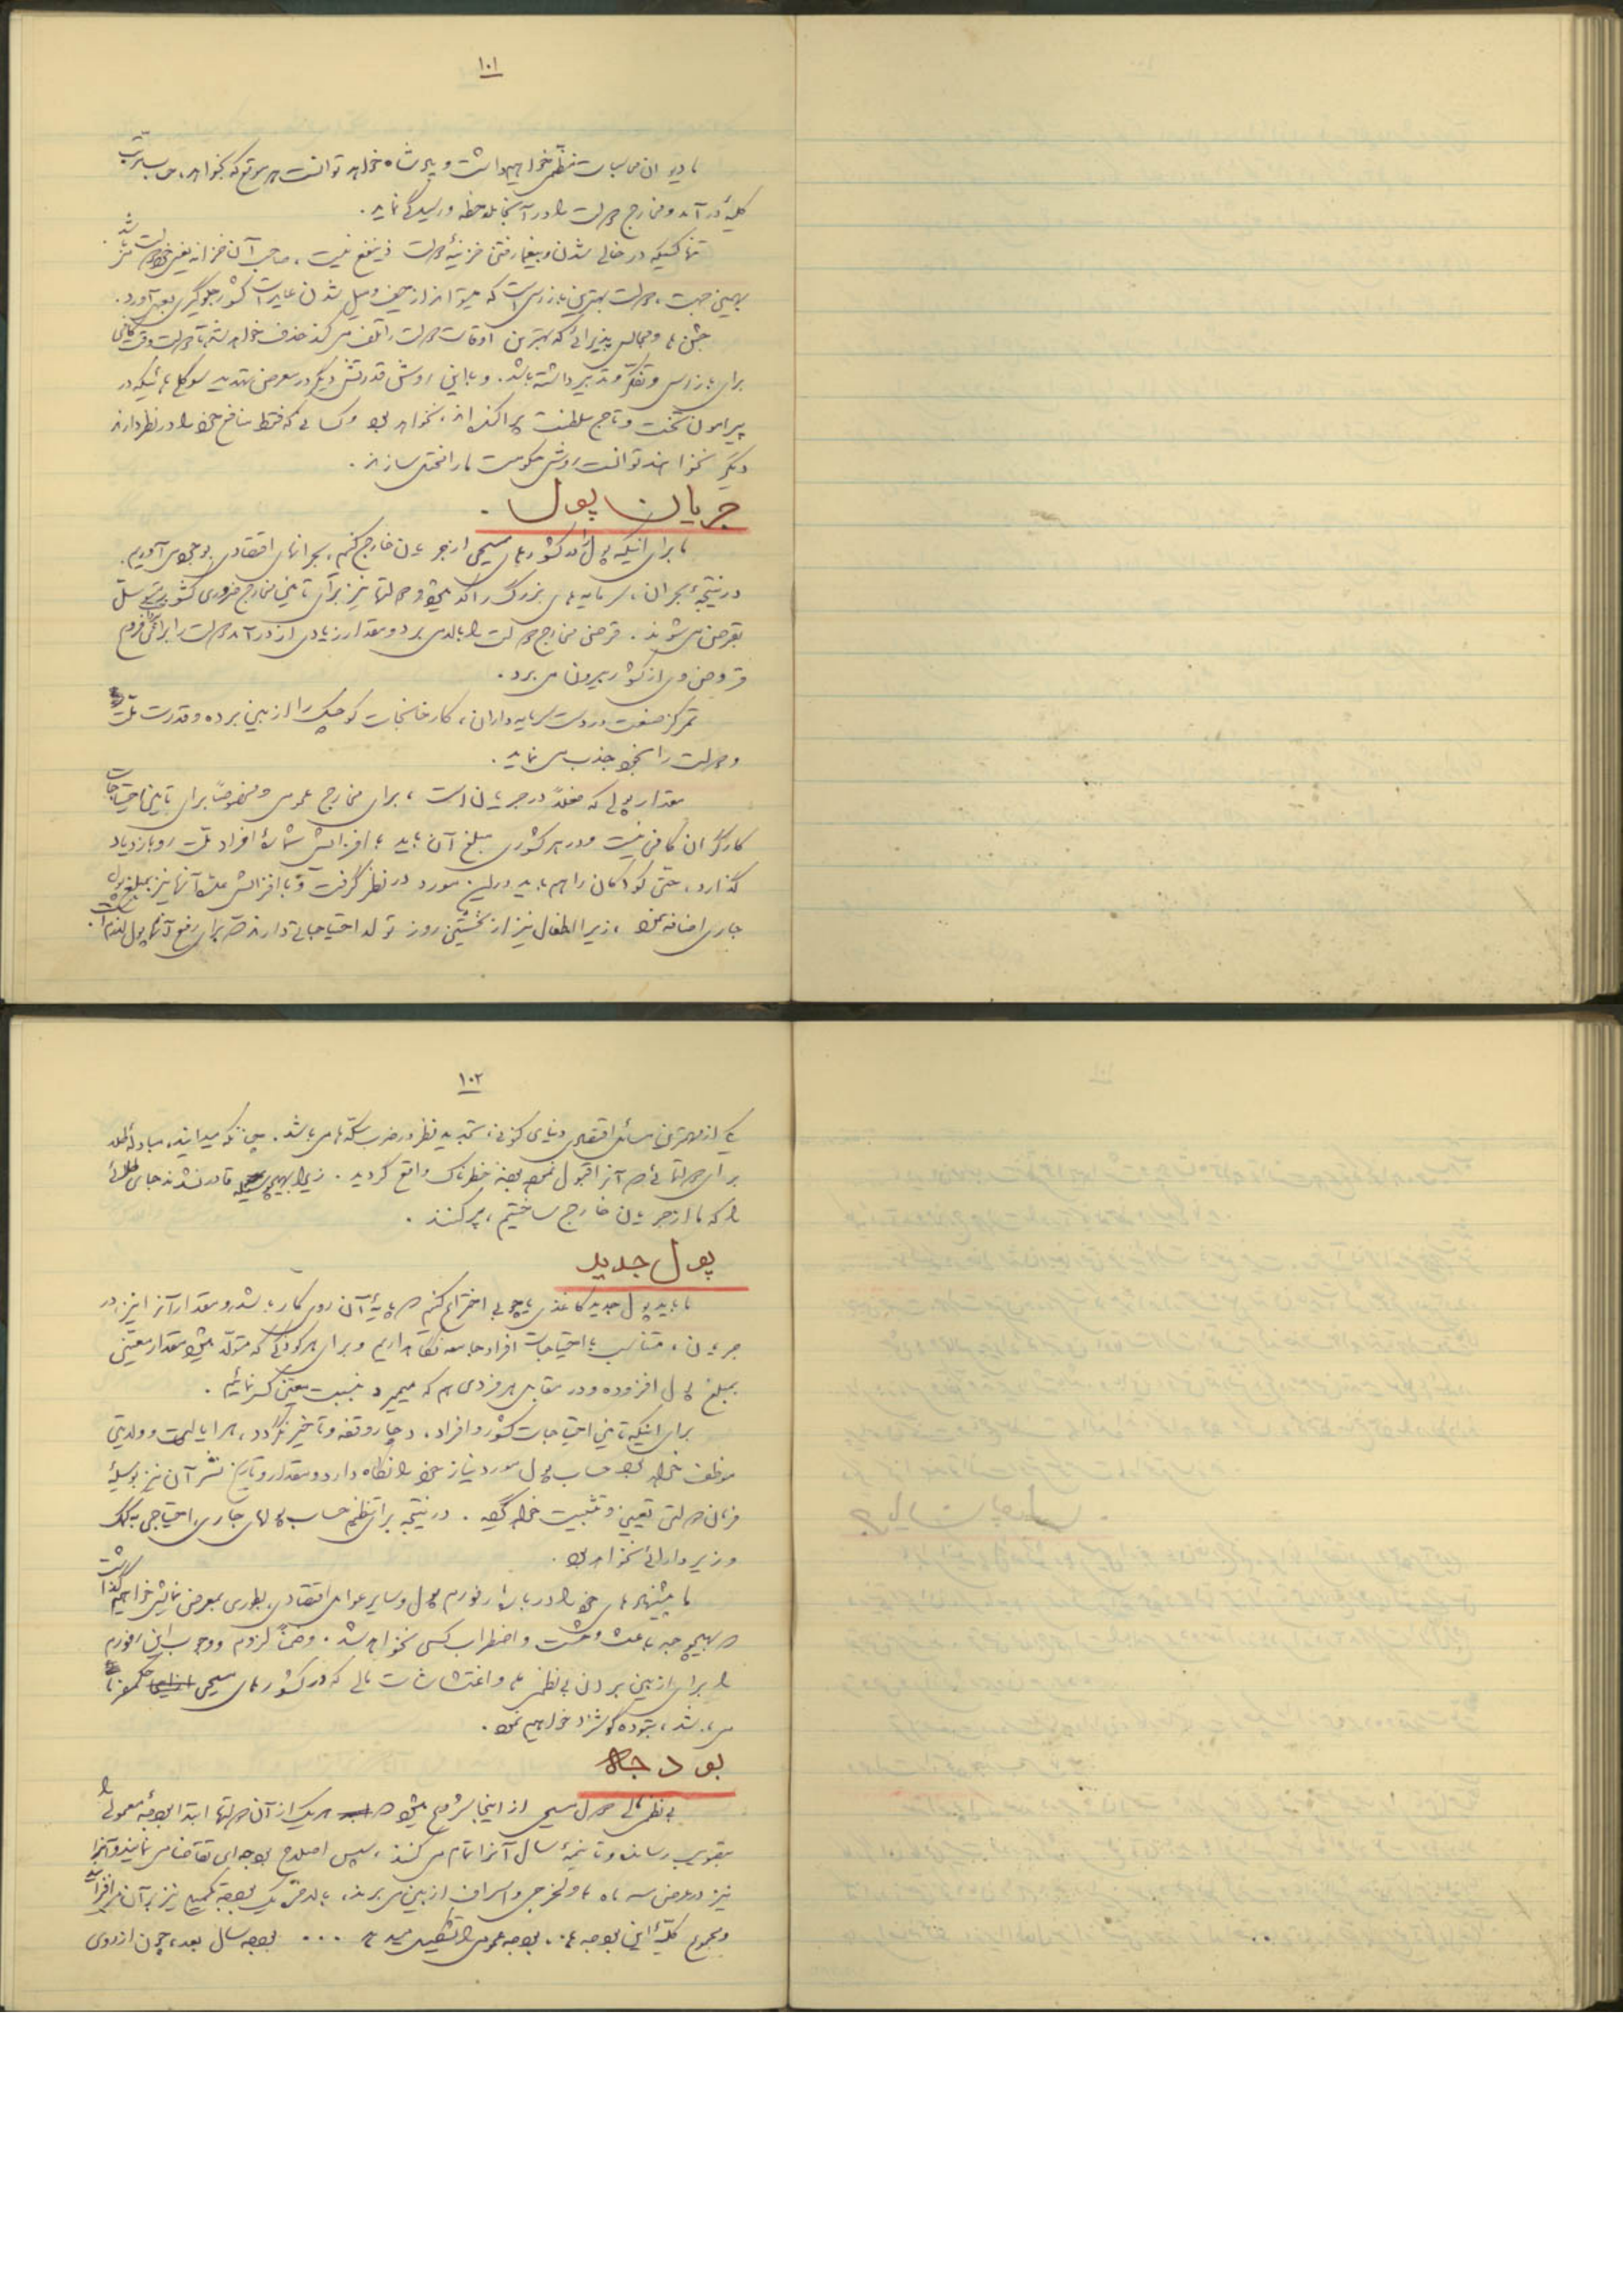 ۱۰۱
ما دیوان محاسبات منظمی خواهیم داشت و پادشاه خواهد توانست هر موقع که بخواهد، حساب مرتب
کلیهٔ درآمد و مخارج دولت را در آنجا ملاحظه و رسیدگی نماید.
تنها کسیکه در خالی شدن و بیغما رفتن خزینهٔ دولت ذینفع نیست، صاحب آن خزانه یعنی خود دولت میباشد.
بهمین جهت، دولت بهترین بازرسی است که میتواند از حیف و میل شدن عایدات کشور جلوگیری بعمل آورد.
جشن ها و مجالس پذیرائی که بهترین اوقات دولت را تلف می کند حذف خواهد شد تا دولت وقت کافی
برای بازرسی و تفکر و تدبیر داشته باشد. و با این روش قدرتش دیگر در معرض تهدید سوگلی هائیکه در
پیرامون تخت و تاج سلطنت پراکنده اند، نخواهد بود و کسانی که فقط منافع خود را در نظر دارند
دیگر نخواهند توانست روش حکومت ما را مختل سازند.
جریان پول.
ما برای اینکه پول را در کشورهای مسیحی از جریان خارج کنیم، بحرانهای اقتصادی بوجود می آوریم.
در نتیجهٔ بحران، سرمایه های بزرگ راکد میشود و دولتها نیز برای تامین مخارج ضروری کشور متوسل
بقرض می شوند. قرض مخارج دولت را بالا می برد و مقدار زیادی از درآمد دولت را برای فرع
قروض وی از کشور بیرون می برد.
تمرکز صنعت در دست سرمایه داران، کارخانجات کوچک را از بین برده و قدرت ملت
و دولت را بخود جذب می نماید.
مقدار پولی که فعلاً در جریان است، برای مخارج عمومی و مخصوصاً برای تامین احتیاجات
کارگران کافی نیست و در هر کشوری مبلغ آن باید با افزایش شمارهٔ افراد ملت رو بازدیاد
گذارد، حتی کودکان را هم باید در این مورد در نظر گرفت و با افزایش عدهٔ آنها نیز بمبلغ پول
جاری اضافه نمود، زیرا اطفال نیز از نخستین روز تولد احتیاجاتی دارند که برای رفع آنها پول لازم است.
۱۰۲
یکی از مهمترین مسائل اقتصادی دنیای کنونی، تجدید نظر در ضرب سکه ها می باشد. چنانکه میدانید، مبادلهٔ طلا
برای دولتهائی که آنرا قبول نموده بودند خطرناک واقع گردید. زیرا بهیچوسیله قادر نشدند جای طلائی
را که ما از جریان خارج ساختیم، پر کنند.
پول جدید
ما باید پول جدید کاغذی یا چوبی اختراع کنیم که پایهٔ آن روی کار باشد و مقدار آنرا نیز، در
جریان، متناسب با احتیاجات افراد جامعه نگاهداریم و برای هر کودکی که متولد میشود مقدار معینی
بمبلغ پول افزوده و در مقابل هر فردی هم که میمیرد نسبت معین کسر نمائیم.
برای اینکه تامین احتیاجات کشور و افراد، دچار وقفه و تاخیر نگردد، هر ایالت و ولایتی
موظف خواهد بود حساب پول مورد نیاز خود را نگاه دارد و مقدار و تاریخ نشر آن نیز بوسیلهٔ
فرمان دولتی تعیین و تثبیت خواهد گردید. در نتیجه برای تنظیم حساب پولهای جاری، احتیاجی به کمک
وزیر دارائی نخواهد بود.
ما پیشنهادهای خود را در باره رفورم پول و سایر عوامل اقتصادی، بطوری بمعرض نمایش خواهیم گذاشت
که بهیچوجه باعث وحشت و اضطراب کسی نخواهد شد. و ضمناً لزوم و وجوب این رفورم
را برای از بین بردن بی نظمی ها و اغتشاشات مالی که در کشورهای مسیحی حکمفرما
می باشد، بتوده گوشزد خواهیم نمود.
بودجه
بی نظمی مالی دول مسیحی از اینجا شروع میشود که هر یک از آن دولتها ابتدا بودجهٔ معمولی را
بتصویب رسانده و تا نیمهٔ سال آنرا تمام می کنند، سپس اصلاح بودجه ای تقاضا می نمایند و آنرا
نیز در عرض سه ماه با ولخرجی و اسراف از بین می برند، بالاخره یک بودجهٔ تکمیلی نیز بر آن می افزایند
و مجموع کلیهٔ این بودجه ها، بودجه عمومی را تشکیل میدهد ... بودجه سال بعد، چون از روی